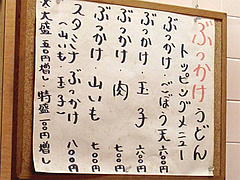 ぶっかけうどん
トッピングメニュー
ぶっかけ・ごぼう天 六〇〇
ぶっかけ・玉子 六〇〇
ぶっかけ・肉 七〇〇
ぶっかけ・山いも 七〇〇
スタミナぶっかけ 八〇〇
(山いも・玉子)
大盛 五〇円増し・特盛一〇〇円増し